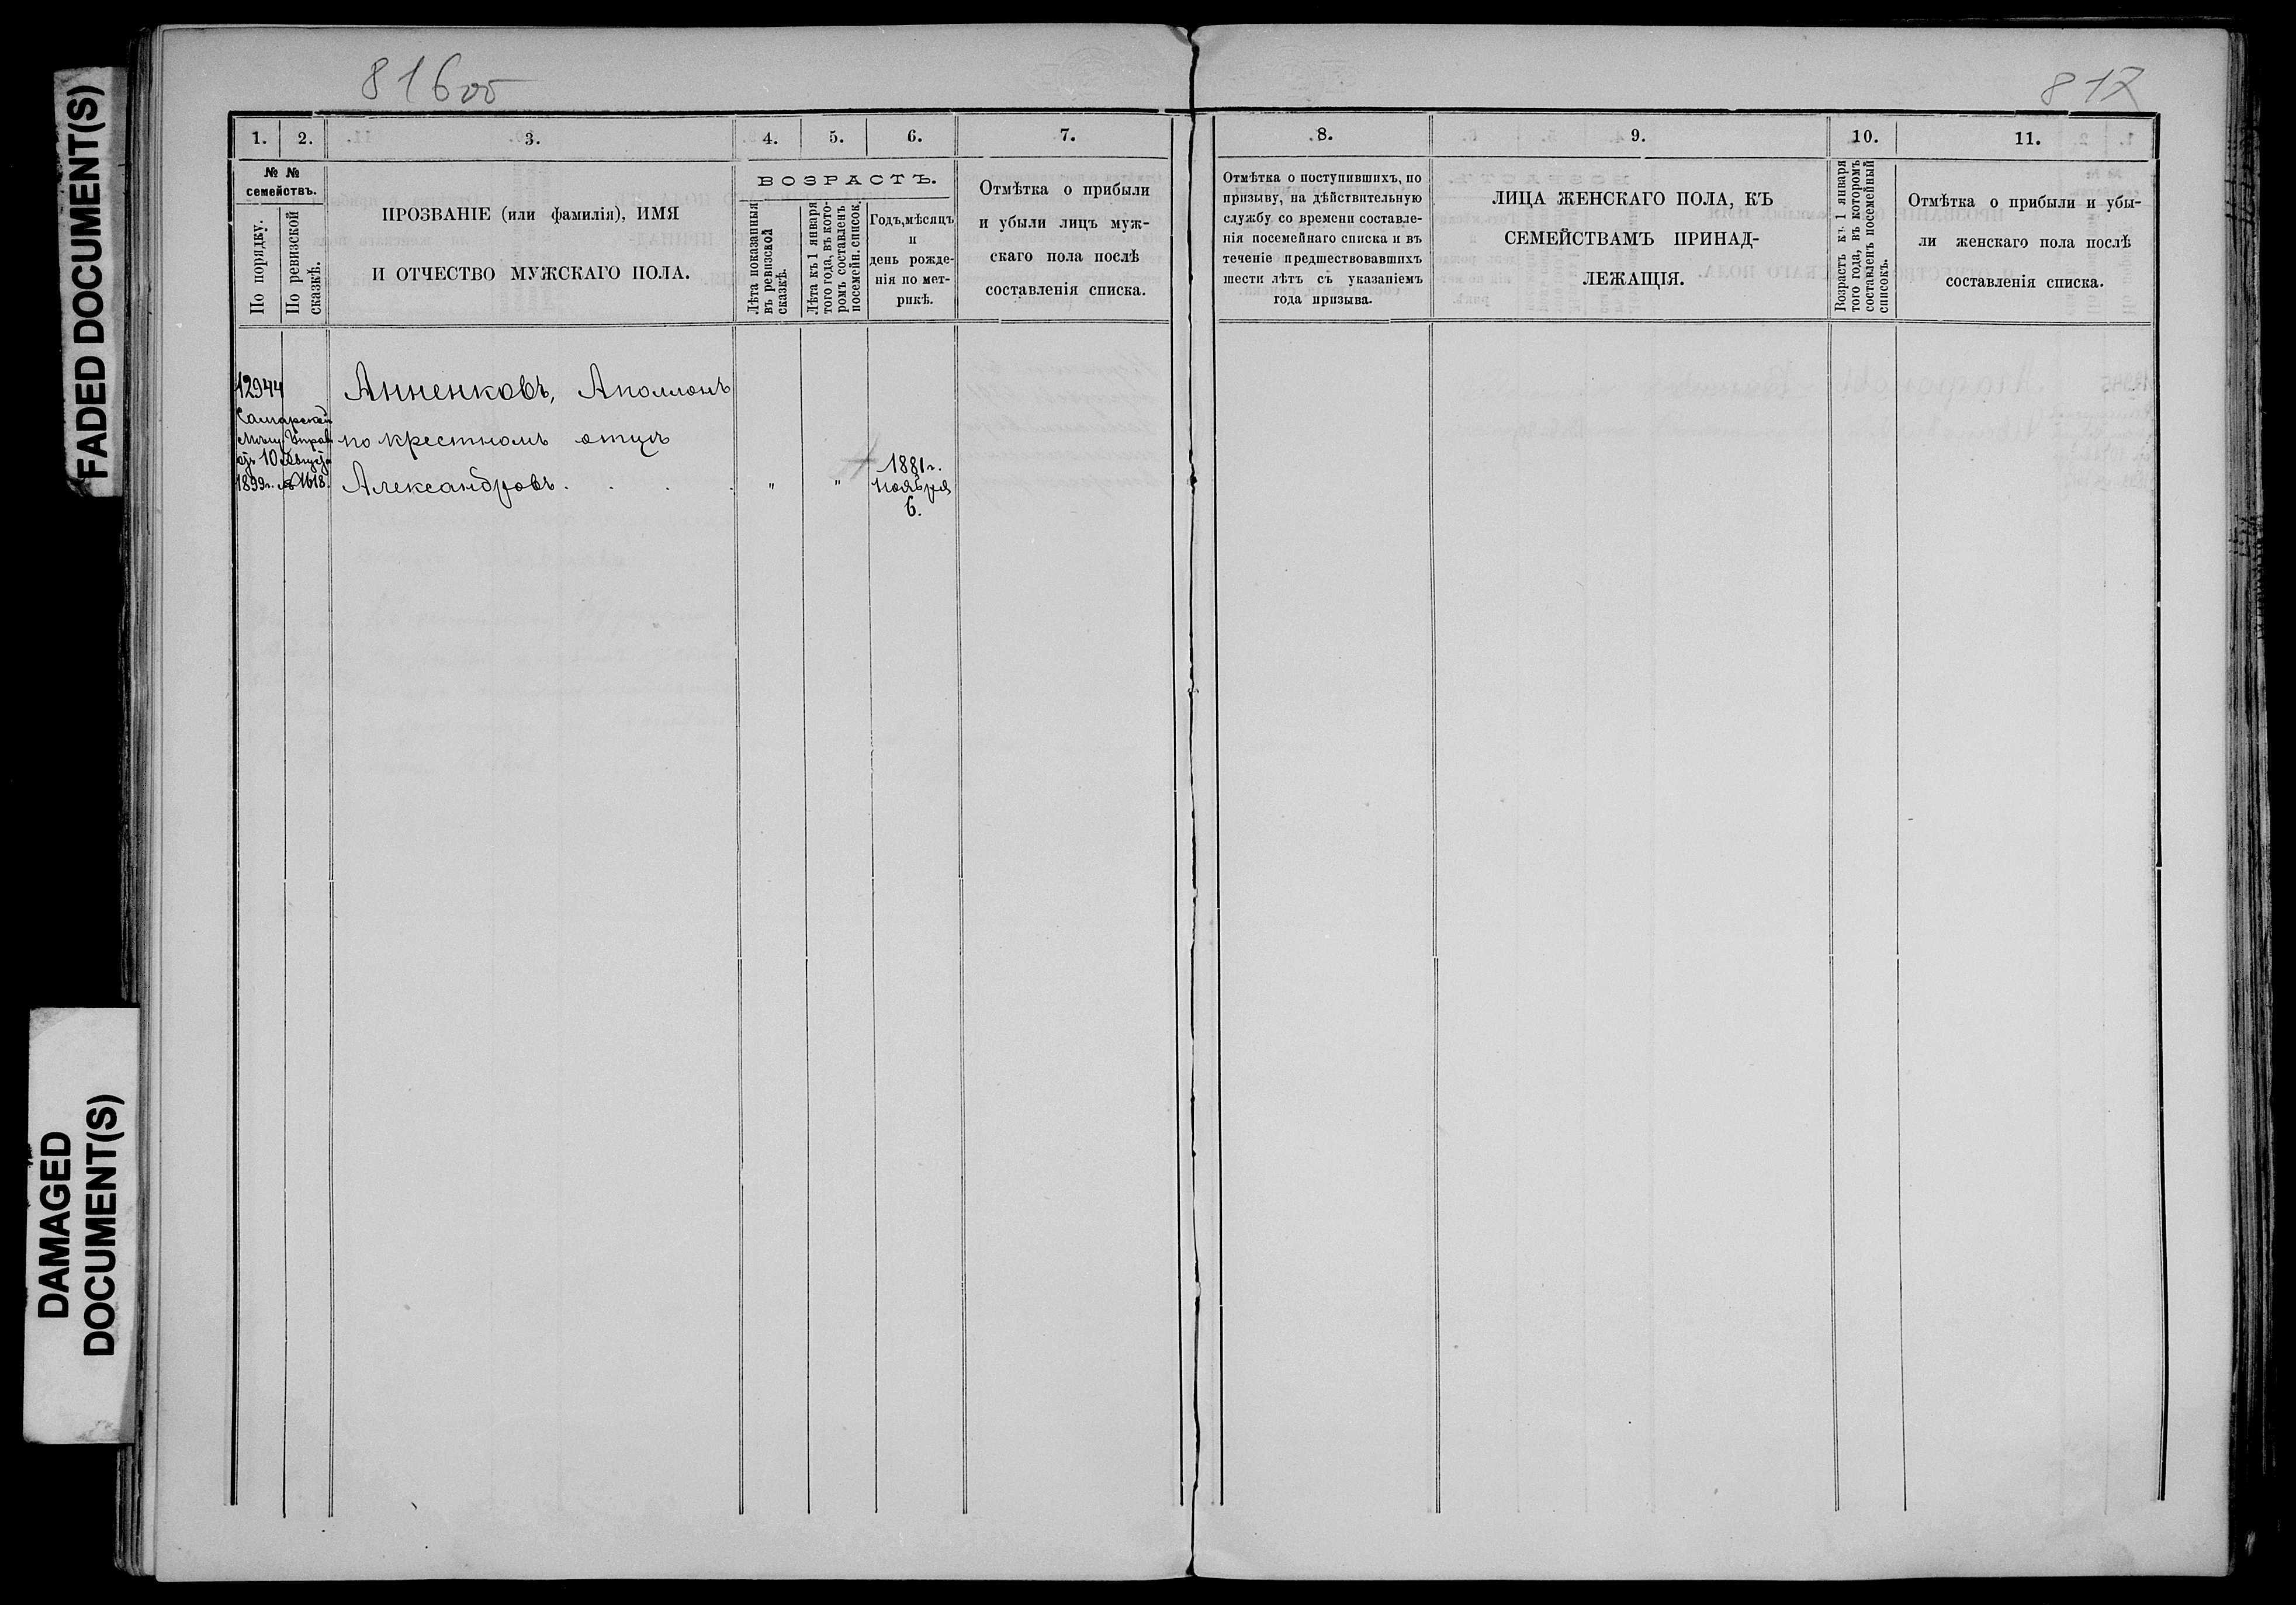 FADED DOCUMENT(S)
DAMAGED
DOCUMENT(S)
816об
1. 2. 3. 4. 5. 6. 7.
№ №
семействъ.
По порядку.
По ревизской
сказкѣ.
ПРОЗВАНІЕ (или фамилія), ИМЯ
И ОТЧЕСТВО МУЖСКАГО ПОЛА.
ВОЗРАСТЪ.
Лѣта показанныя
въ ревизской
сказкѣ.
Лѣта къ 1 января
того года, въ кото-
ромъ составленъ
посемейн. список.
Годъ, мѣсяцъ
и
день рожде-
нія по мет-
рикѣ.
Отмѣтка о прибыли
и убыли лицъ муж-
скаго пола послѣ
составленія списка.
12944
Самарской
Мѣщ. Управ
отъ 10 Августа
1899г. № 1618.
Анненковъ, Аполлонъ
по крестномъ отцѣ
Александровъ . . . . " "
1881 г.
ноября
6.
817
8. 9. 10. 11.
Отмѣтка о поступившихъ, по
призыву, на дѣйствительную
службу со времени составле-
нія посемейнаго списка и въ
теченіе предшествовавшихъ
шести лѣтъ съ указаніемъ
года призыва.
ЛИЦА ЖЕНСКАГО ПОЛА, КЪ
СЕМЕЙСТВАМЪ ПРИНАД-
ЛЕЖАЩІЯ.
Возрастъ къ 1 января
того года, въ которомъ
составленъ посемейный
списокъ.
Отмѣтка о прибыли и убы-
ли женскаго пола послѣ
составленія списка.